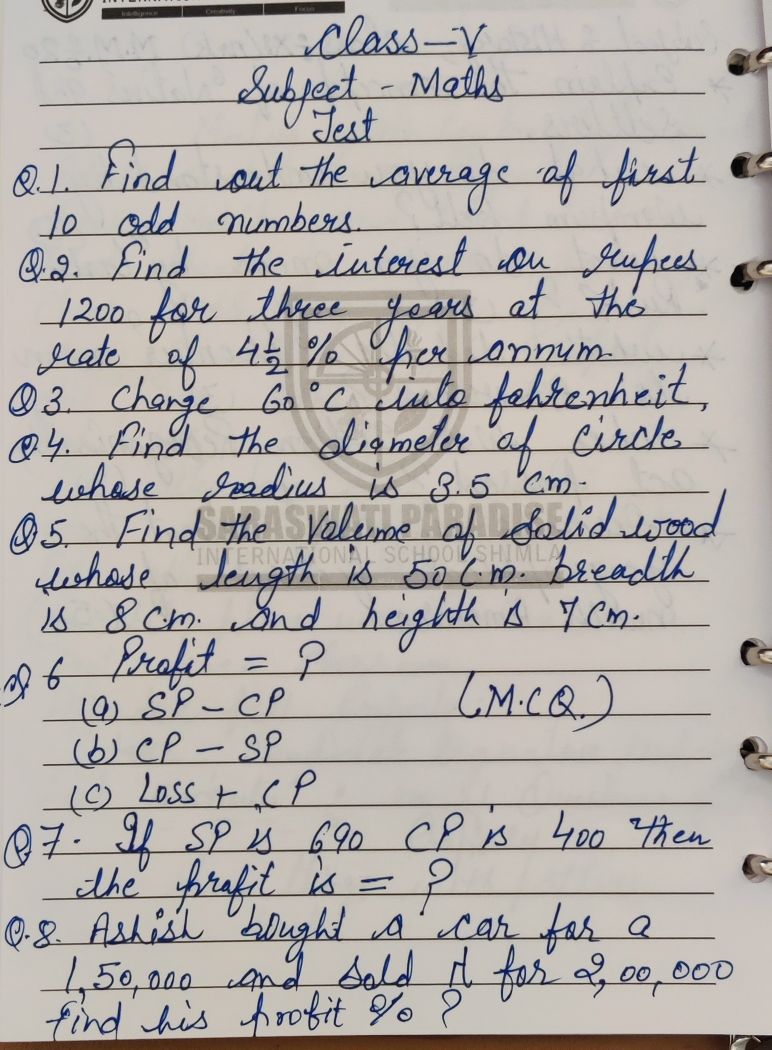 Intelligence Creativity Focus
Class-V
Subject - Maths
Test
Q.1. Find out the average of first
10 odd numbers.
Q.2. Find the interest on rupees
1200 for three years at the
rate of 4½ % per annum
Q3. Change 60°C into fahrenheit,
Q4. Find the diameter of circle
whose radius is 3.5 cm.
SARASWATI PARADISE
Q5. Find the Volume of solid wood
INTERNATIONAL SCHOOL SHIMLA
whose length is 50 C.m. breadth
is 8 C.m. and heighth is 7 Cm.
Q 6 Profit = ?
(a) SP - CP (M.C.Q.)
(b) CP - SP
(C) Loss + CP
Q7. If SP is 690 CP is 400 then
the profit is = ?
Q.8. Ashish bought a car for a
1,50,000 and sold it for 2,00,000
find his profit % ?